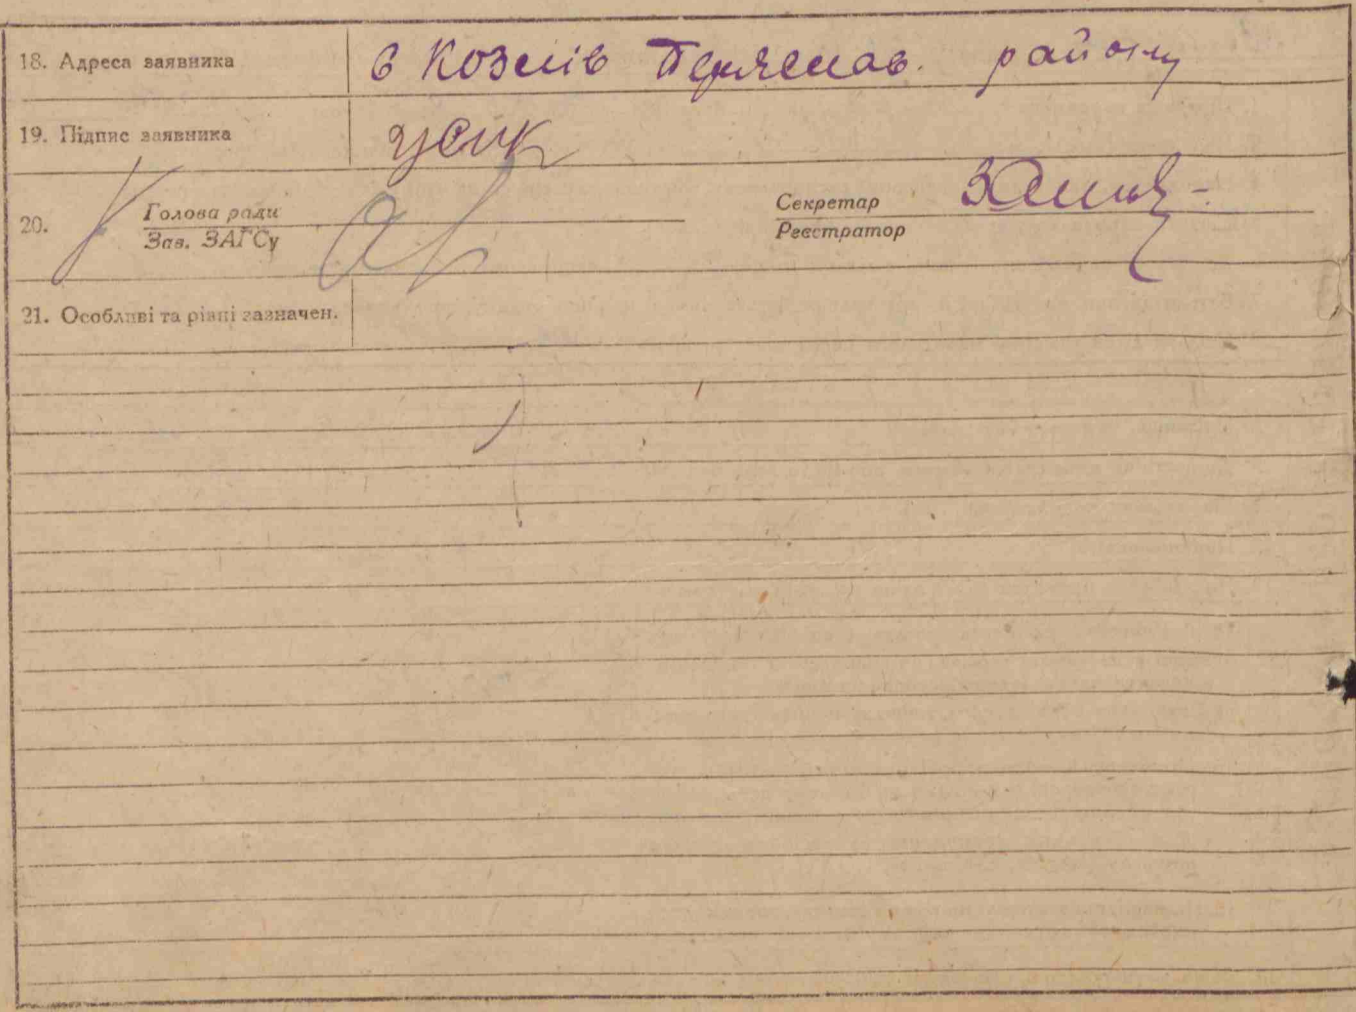 18. Адреса заявника в Козлів Переяслав. району
19. Підпис заявника Усик
20. Голова ради Секретар
Зав. ЗАГСу Реєстратор
21. Особливі та рівні зазначен.